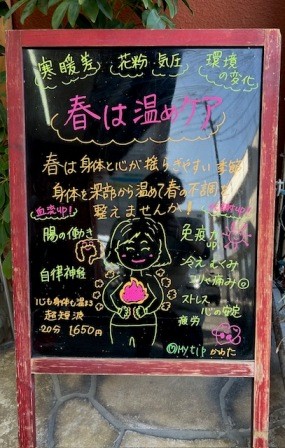 寒暖差 花粉 気圧 環境の変化
春は温めケア
春は身体と心が揺らぎやすい季節
身体を深部から温めて春の不調を
整えませんか!
血流up!
腸の働き
免疫力up
自律神経
冷え むくみ
コリや痛み
ストレス
心の安定
疲労
心も身体も温まる
超短波
20分 1650円